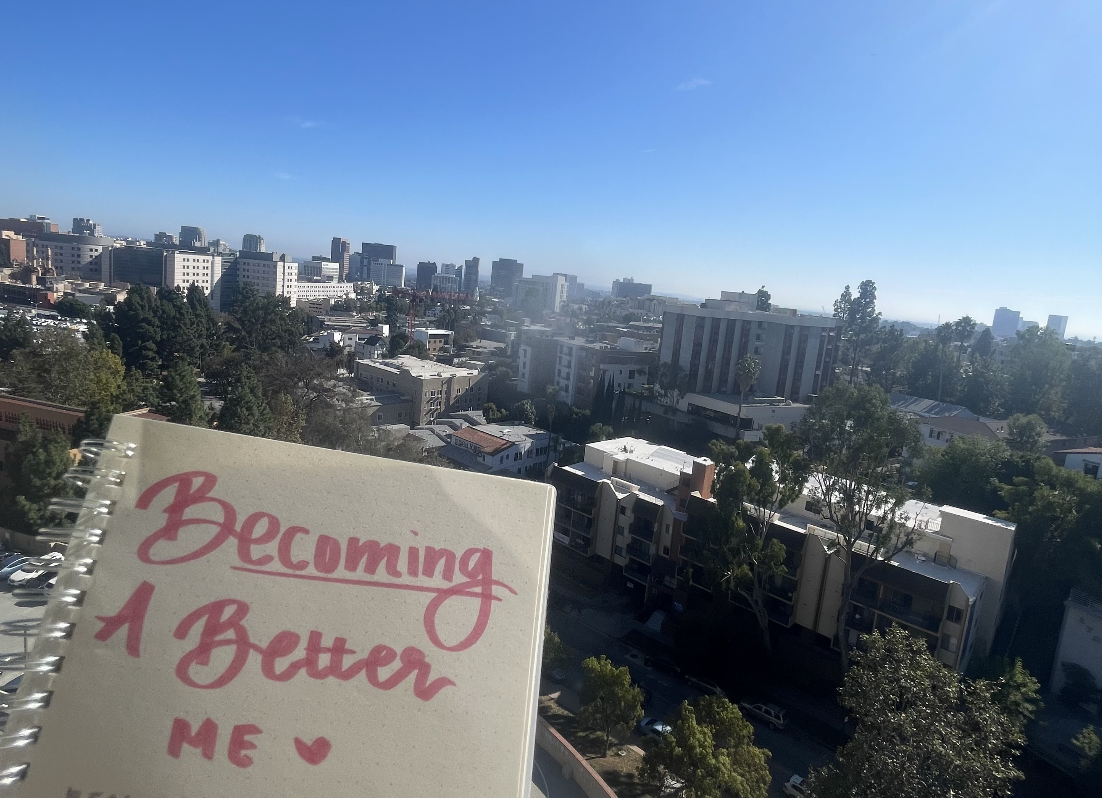 Becoming
A Better
ME ♥